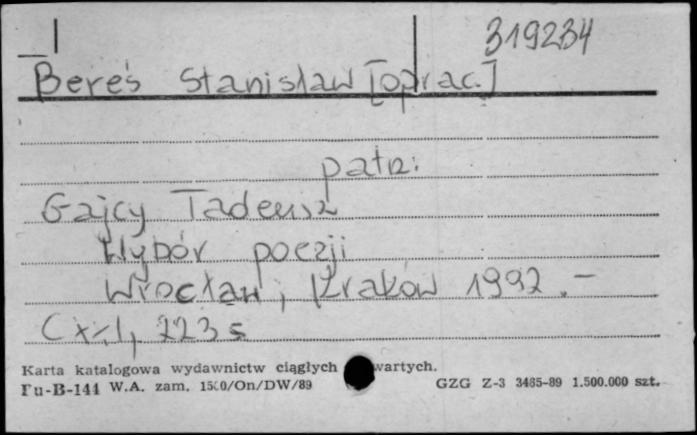 319234
Bereś Stanisław [oprac.]
patrz:
Gajcy Tadeusz
Wybór poezji
Wrocław, Kraków 1992.-
223 s
Karta katalogowa wydawnictw ciągłych wartych.
Pu-B-144 W.A. zam. 1500/On/DW/89 GZG Z-3 3485-89 1.500.000 szt.